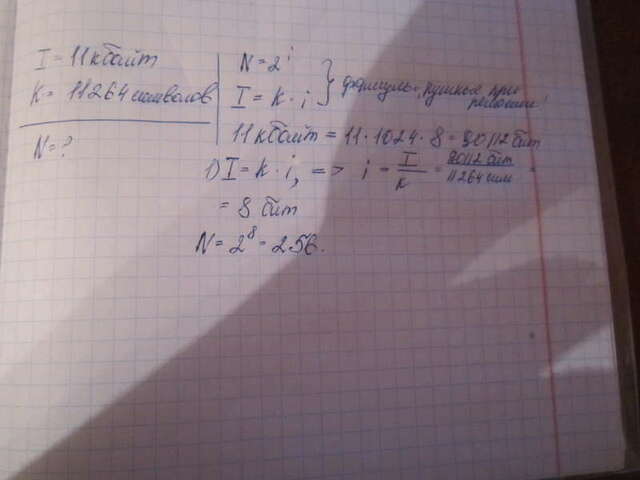 I = 11 кбайт
K = 11264 символов
N = ?
N = 2^i
I = K · i } формулы, нужные при решении!
11 кбайт = 11 · 1024 · 8 = 90112 бит
1) I = K · i, => i = I/K = 90112 бит/11264 сим =
= 8 бит
N = 2^8 = 256.